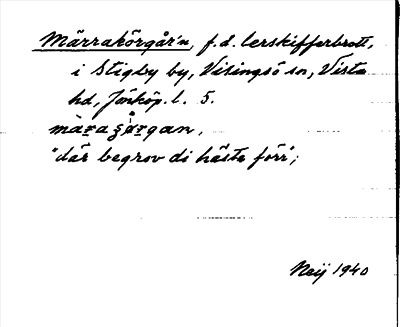 Märrakörgår'n, f.d. lerskifferbrott,
i Stigby by, Visingsö sn, Vista
hd, Jönköp. l. 5.
"där begrov di hästa förr";
Neij 1940